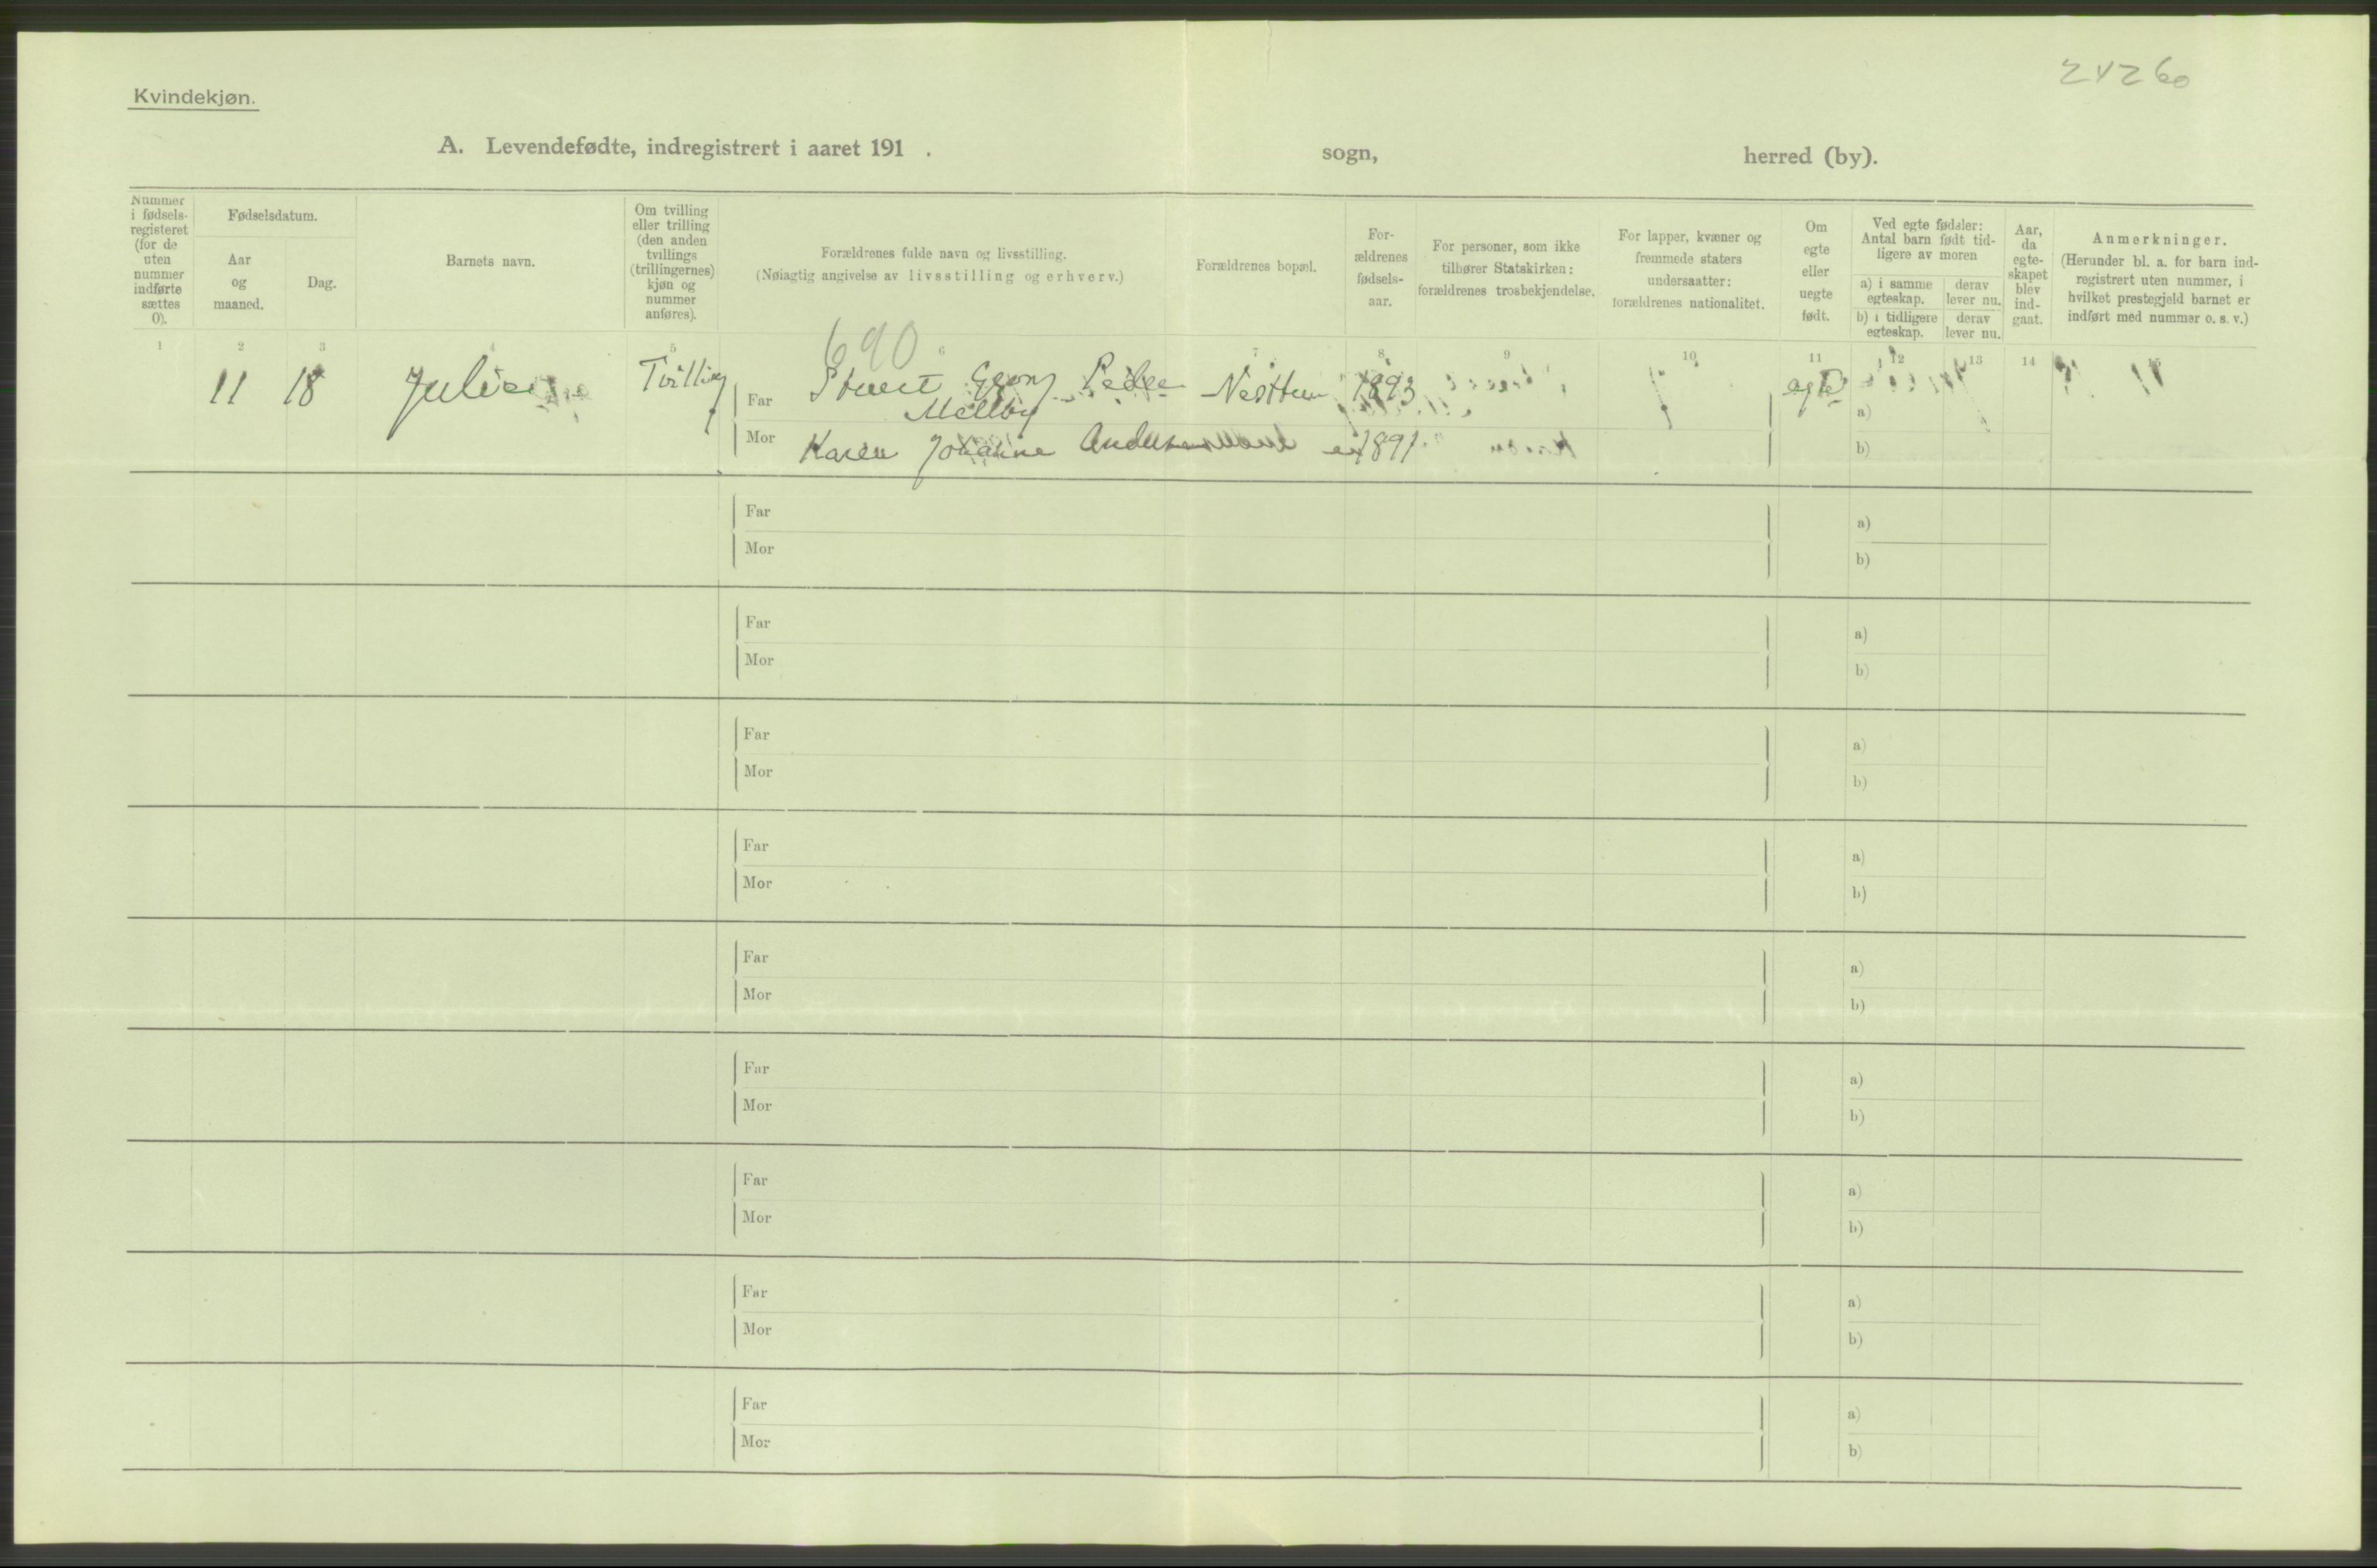 24260
Kvindekjøn.
A. Levendefødte, indregistrert i aaret 191 . sogn, herred (by).
Nummer i fødsels-registeret (for de uten nummer indførte sættes 0).
Fødselsdatum.
Aar og maaned.
Dag.
Barnets navn.
Om tvilling eller trilling (den anden tvillings (trillingernes) kjøn og nummer anføres).
Forældrenes fulde navn og livsstilling.
(Nøiagtig angivelse av livsstilling og erhverv.)
Forældrenes bopæl.
For-ældrenes fødsels-aar.
For personer, som ikke tilhører Statskirken: forældrenes trosbekjendelse.
For lapper, kvæner og fremmede staters undersaatter: forældrenes nationalitet.
Om egte eller uegte født.
Ved egte fødsler: Antal barn født tid-ligere av moren
a) i samme egteskap.
derav lever nu.
b) i tidligere egteskap.
derav lever nu.
Aar, da egte-skapet blev ind-gaat.
Anmerkninger.
(Herunder bl. a. for barn ind-registrert uten nummer, i hvilket prestegjeld barnet er indført med nummer o. s. v.)
1 2 3 4 5 6 7 8 9 10 11 12 13 14 15
690
11 18 Tvilling Far Georg Peder Nesttun 1893 egte a)
Mellby
Mor Karen Johanne 1891 b)
Far a)
Mor b)
Far a)
Mor b)
Far a)
Mor b)
Far a)
Mor b)
Far a)
Mor b)
Far a)
Mor b)
Far a)
Mor b)
Far a)
Mor b)
Far a)
Mor b)